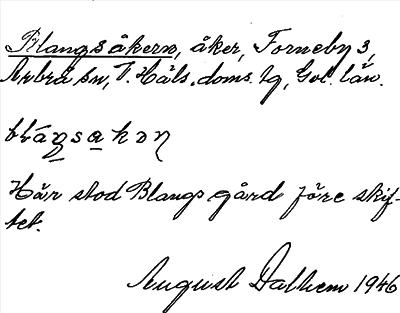 Blangsåkern, åker, Forneby 3,
Arbrå sn, V. Häls. doms. lg, Gvl. län.
blåŋsakəɳ
Här stod Blangs gård före skif-
tet.
August Dalhem 1946